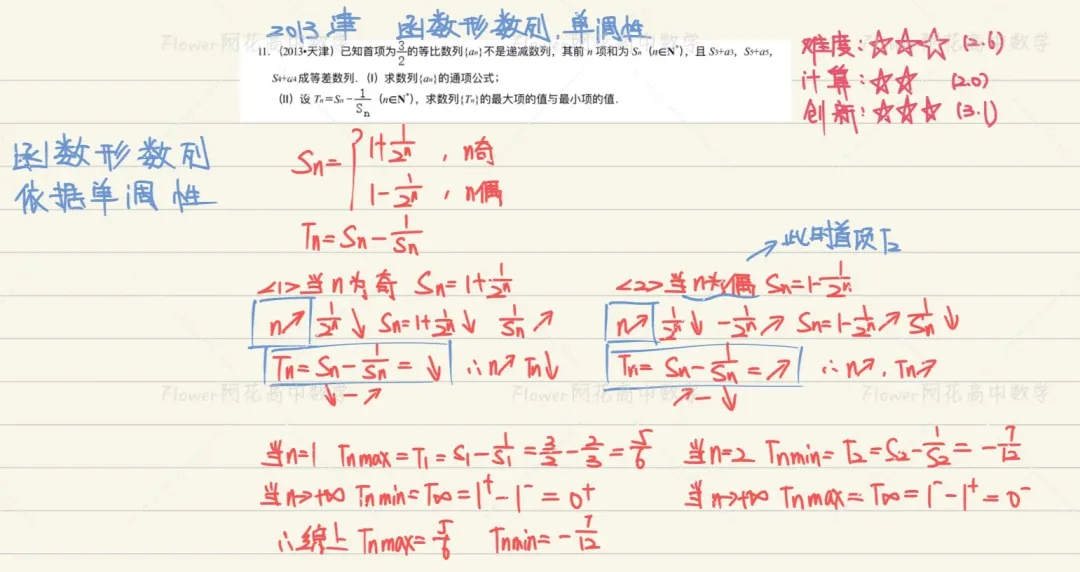 2013津 函数形数列.单调性
11.（2013•天津）已知首项为3/2的等比数列{aₙ}不是递减数列，其前 n 项和为 Sₙ（n∈N*），且 S₃+a₃，S₅+a₅，
S₄+a₄ 成等差数列.（Ⅰ）求数列{aₙ}的通项公式；
（Ⅱ）设 Tₙ=Sₙ-1/Sₙ（n∈N*），求数列{Tₙ}的最大项的值与最小项的值.
难度：☆☆☆ (2.6)
计算：☆☆ (2.0)
创新：☆☆☆ (3.1)
函数形数列
依据单调性
Sn= { 1+1/2ⁿ ，n奇
1-1/2ⁿ ，n偶
Tn=Sn-1/Sn
<1>当n为奇 Sn=1+1/2ⁿ
n↗ 1/2ⁿ↓ Sn=1+1/2ⁿ↓ 1/Sn↗
Tn=Sn-1/Sn=↓ ∴n↗ Tn↓
↓-↗
此时首项T₂
<2>当n为偶 Sn=1-1/2ⁿ
n↗ 1/2ⁿ↓ -1/2ⁿ↗ Sn=1-1/2ⁿ↗ 1/Sn↓
Tn=Sn-1/Sn=↗ ∴n↗，Tn↗
↗-↓
当n=1 Tnmax=T₁=S₁-1/S₁=3/2-2/3=5/6
当n→+∞ Tnmin=T∞=1⁺-1⁻=0⁺
当n=2 Tnmin=T₂=S₂-1/S₂=-7/12
当n→+∞ Tnmax=T∞=1⁻-1⁺=0⁻
∴综上 Tnmax=5/6 Tnmin=-7/12
Flower阿花高中数学
Flower阿花高中数学
Flower阿花高中数学
Flower阿花高中数学